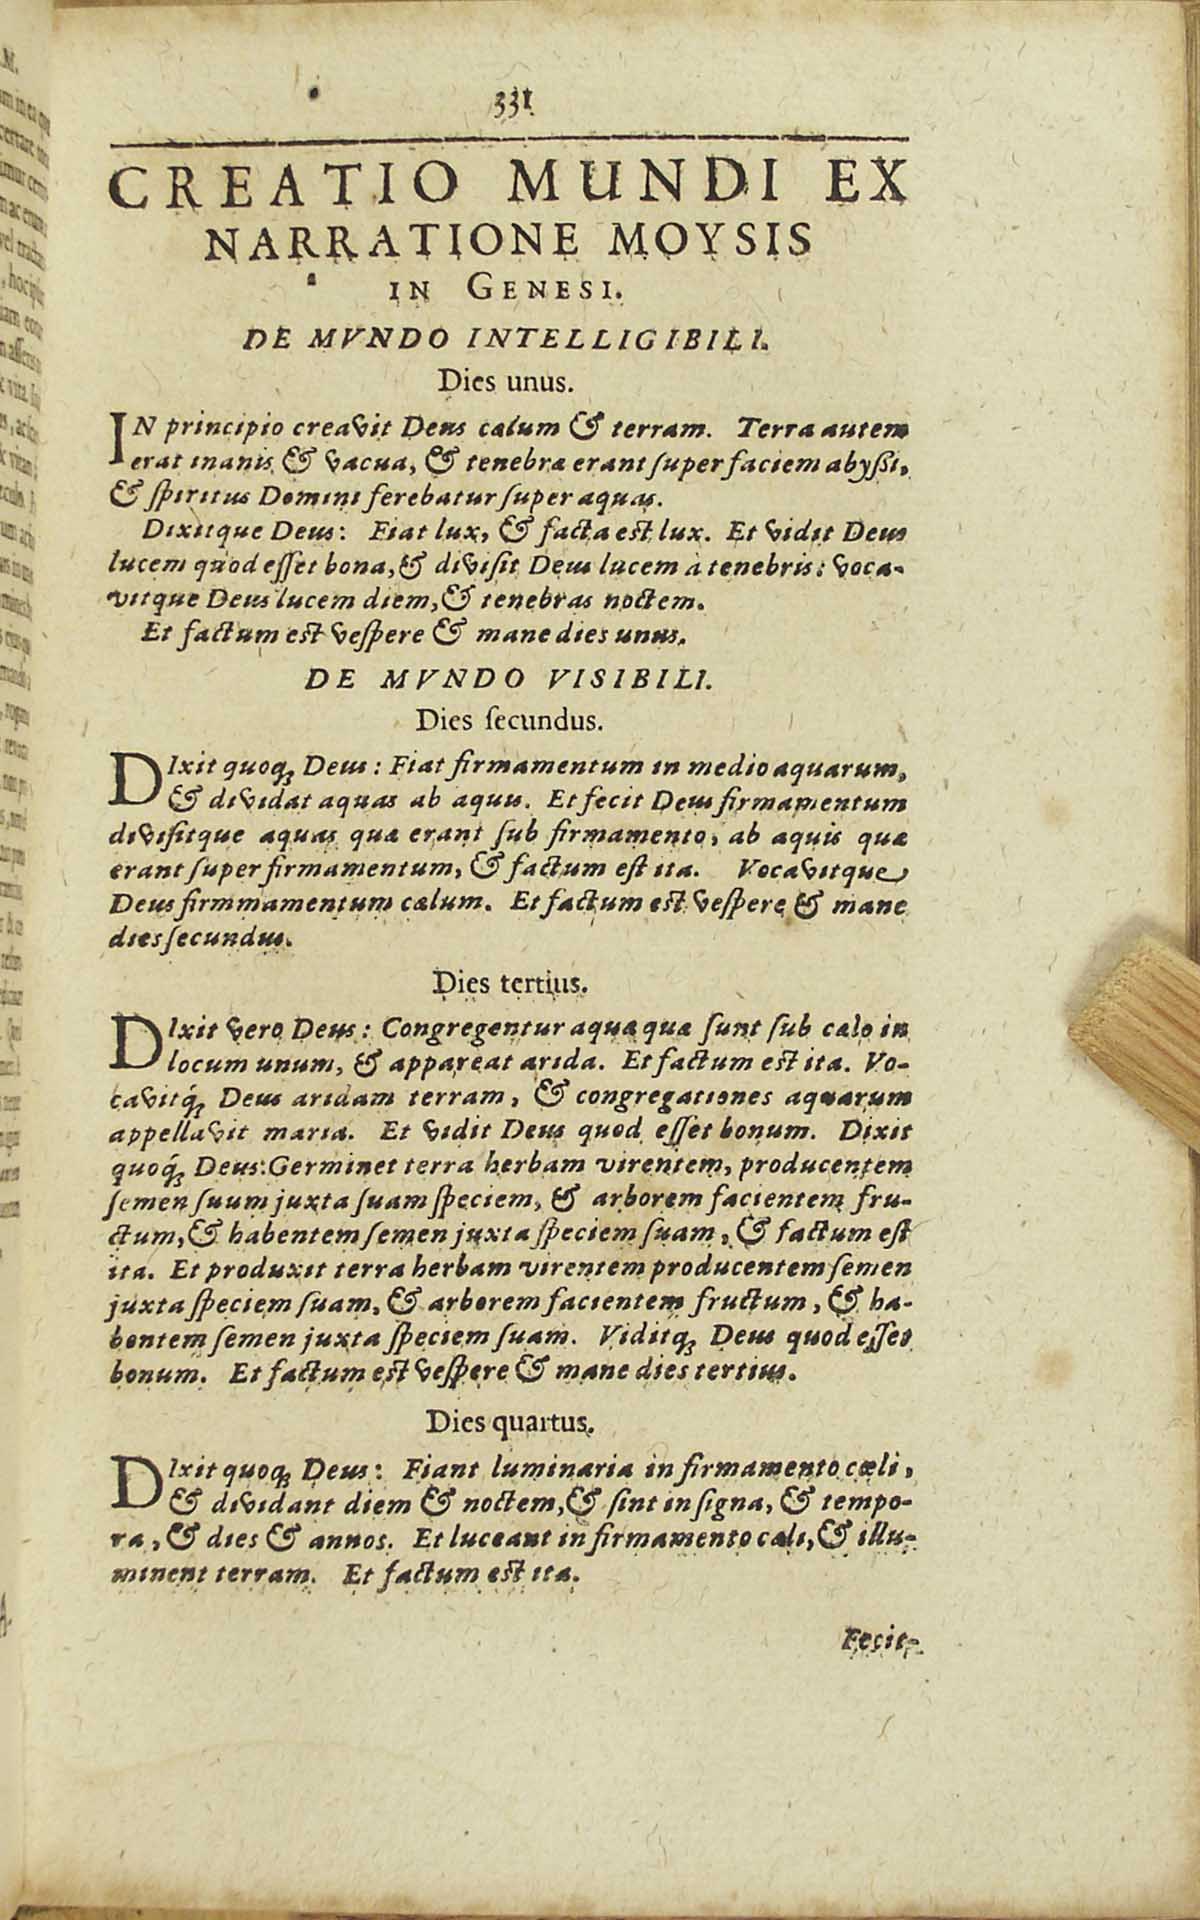 331
CREATIO MUNDI EX
NARRATIONE MOYSIS
IN GENESI.
DE MVNDO INTELLIGIBILI.
Dies unus.
IN principio creavit Deus cælum & terram. Terra autem
erat inanis & vacua, & tenebræ erant super faciem abyßi,
& spiritus Domini ferebatur super aquas.
Dixitque Deus: Fiat lux, & facta est lux. Et vidit Deus
lucem quòd esset bona, & divisit Deus lucem à tenebris: voca-
vitque Deus lucem diem, & tenebras noctem.
Et factum est vespere & mane dies unus.
DE MVNDO VISIBILI.
Dies secundus.
DIxit quoq; Deus: Fiat firmamentum in medio aquarum,
& dividat aquas ab aquis. Et fecit Deus firmamentum
divisitque aquas quæ erant sub firmamento, ab aquis quæ
erant super firmamentum, & factum est ita. Vocavitque
Deus firmmamentum cælum. Et factum est vespere & mane
dies secundus.
Dies tertius.
DIxit vero Deus: Congregentur aquæ quæ sunt sub cælo in
locum unum, & appareat arida. Et factum est ita. Vo-
cavitq́; Deus aridam terram, & congregationes aquarum
appellavit maria. Et vidit Deus quod esset bonum. Dixit
quoq́; Deus: Germinet terra herbam virentem, producentem
semen suum juxta suam speciem, & arborem facientem fru-
ctum, & habentem semen juxta speciem suam, & factum est
ita. Et produxit terra herbam virentem producentem semen
juxta speciem suam, & arborem facientem fructum, & ha-
bentem semen juxta speciem suam. Viditq; Deus quod esset
bonum. Et factum est vespere & mane dies tertius.
Dies quartus.
DIxit quoq; Deus: Fiant luminaria in firmamento cæli,
& dividant diem & noctem, & sint in signa, & tempo-
ra, & dies & annos. Et luceant in firmamento cæli, & illu-
minent terram. Et factum est ita.
Fecit-